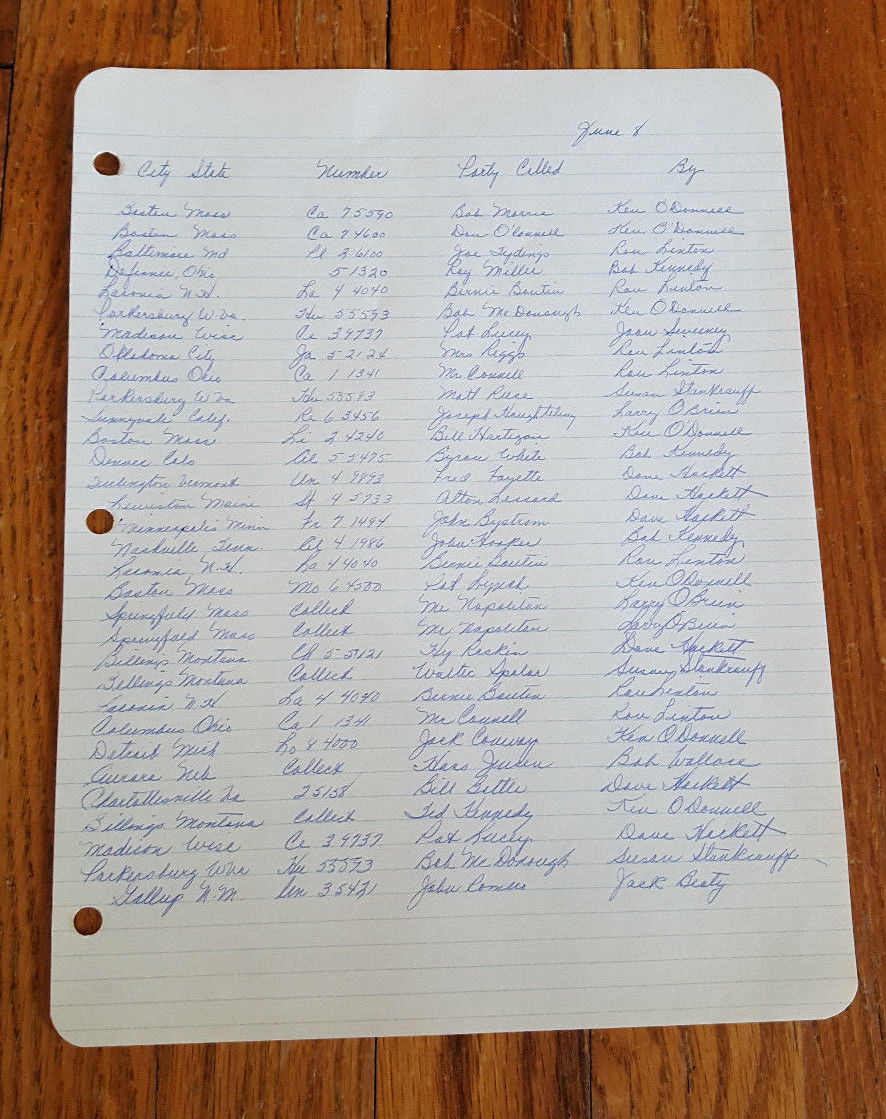 June 8
City State Number Party Called By
Boston Mass Ca 75590 Bob Morris Ken O'Donnell
Boston Mass Ca 74600 Don O'Connell Ken O'Donnell
Baltimore Md Pl 26100 Joe Tydings Ron Linton
Defiance, Ohio 51320 Ray Miller Bob Kennedy
Laconia N.H. La 4 4040 Bernie Boutin Ron Linton
Parkersburg W Va. Hu 55593 Bob McDonough Ken O'Donnell
Madison Wisc Ce 39737 Pat Lucey Joan Sweeney
Oklahoma City Ja 52124 Mrs Riggs Ron Linton
Columbus Ohio Ca 1 1341 Mr Connell Ron Linton
Parkersburg W Va Hu 55593 Matt Reese Susan Stankrauff
Sunnyvale Calif. Re 63456 Joseph Houghteling Larry O'Brien
Boston Mass Li 24240 Bill Hartigan Ken O'Donnell
Denver Colo 55495 Byron White Bob Kennedy
Burlington Vermont Un 49893 Fred Fayette Dave Hackett
Lewiston Maine St 45733 Alton Lessard Dave Hackett
Minneapolis Minn Fr 71494 John Bystrom Dave Hackett
Nashville, Tenn. 41986 John Hooker Bob Kennedy
Laconia N.H La 44040 Bernie Boutin Ron Linton
Boston Mass Mo 64500 Pat Lynch Ken O'Donnell
Springfield Mass Collect Mr Napolitan Larry O'Brien
Springfield Mass Collect Mr Napolitan Larry O'Brien
Billings Montana Ch 55121 Hy Raskin Dave Hackett
Billings Montana Collect Walter Spolar Susan Stankrauff
Laconia N.H La 4 4040 Bernie Boutin Ron Linton
Columbus Ohio Ca 1 1341 Mr Connell Ron Linton
Detroit Mich Lo 84000 Jack Conway Ken O'Donnell
Aurora Neb Collect Hans Jensen Bob Wallace
Charlottesville Va 25158 Bill Battle Dave Hackett
Billings Montana Collect Ted Kennedy Ken O'Donnell
Madison Wisc Ce 39737 Pat Lucey Dave Hackett
Parkersburg W Va Hu 55593 Bob McDonough Susan Stankrauff
Gallup N.M. Un 35421 John Jack Beaty